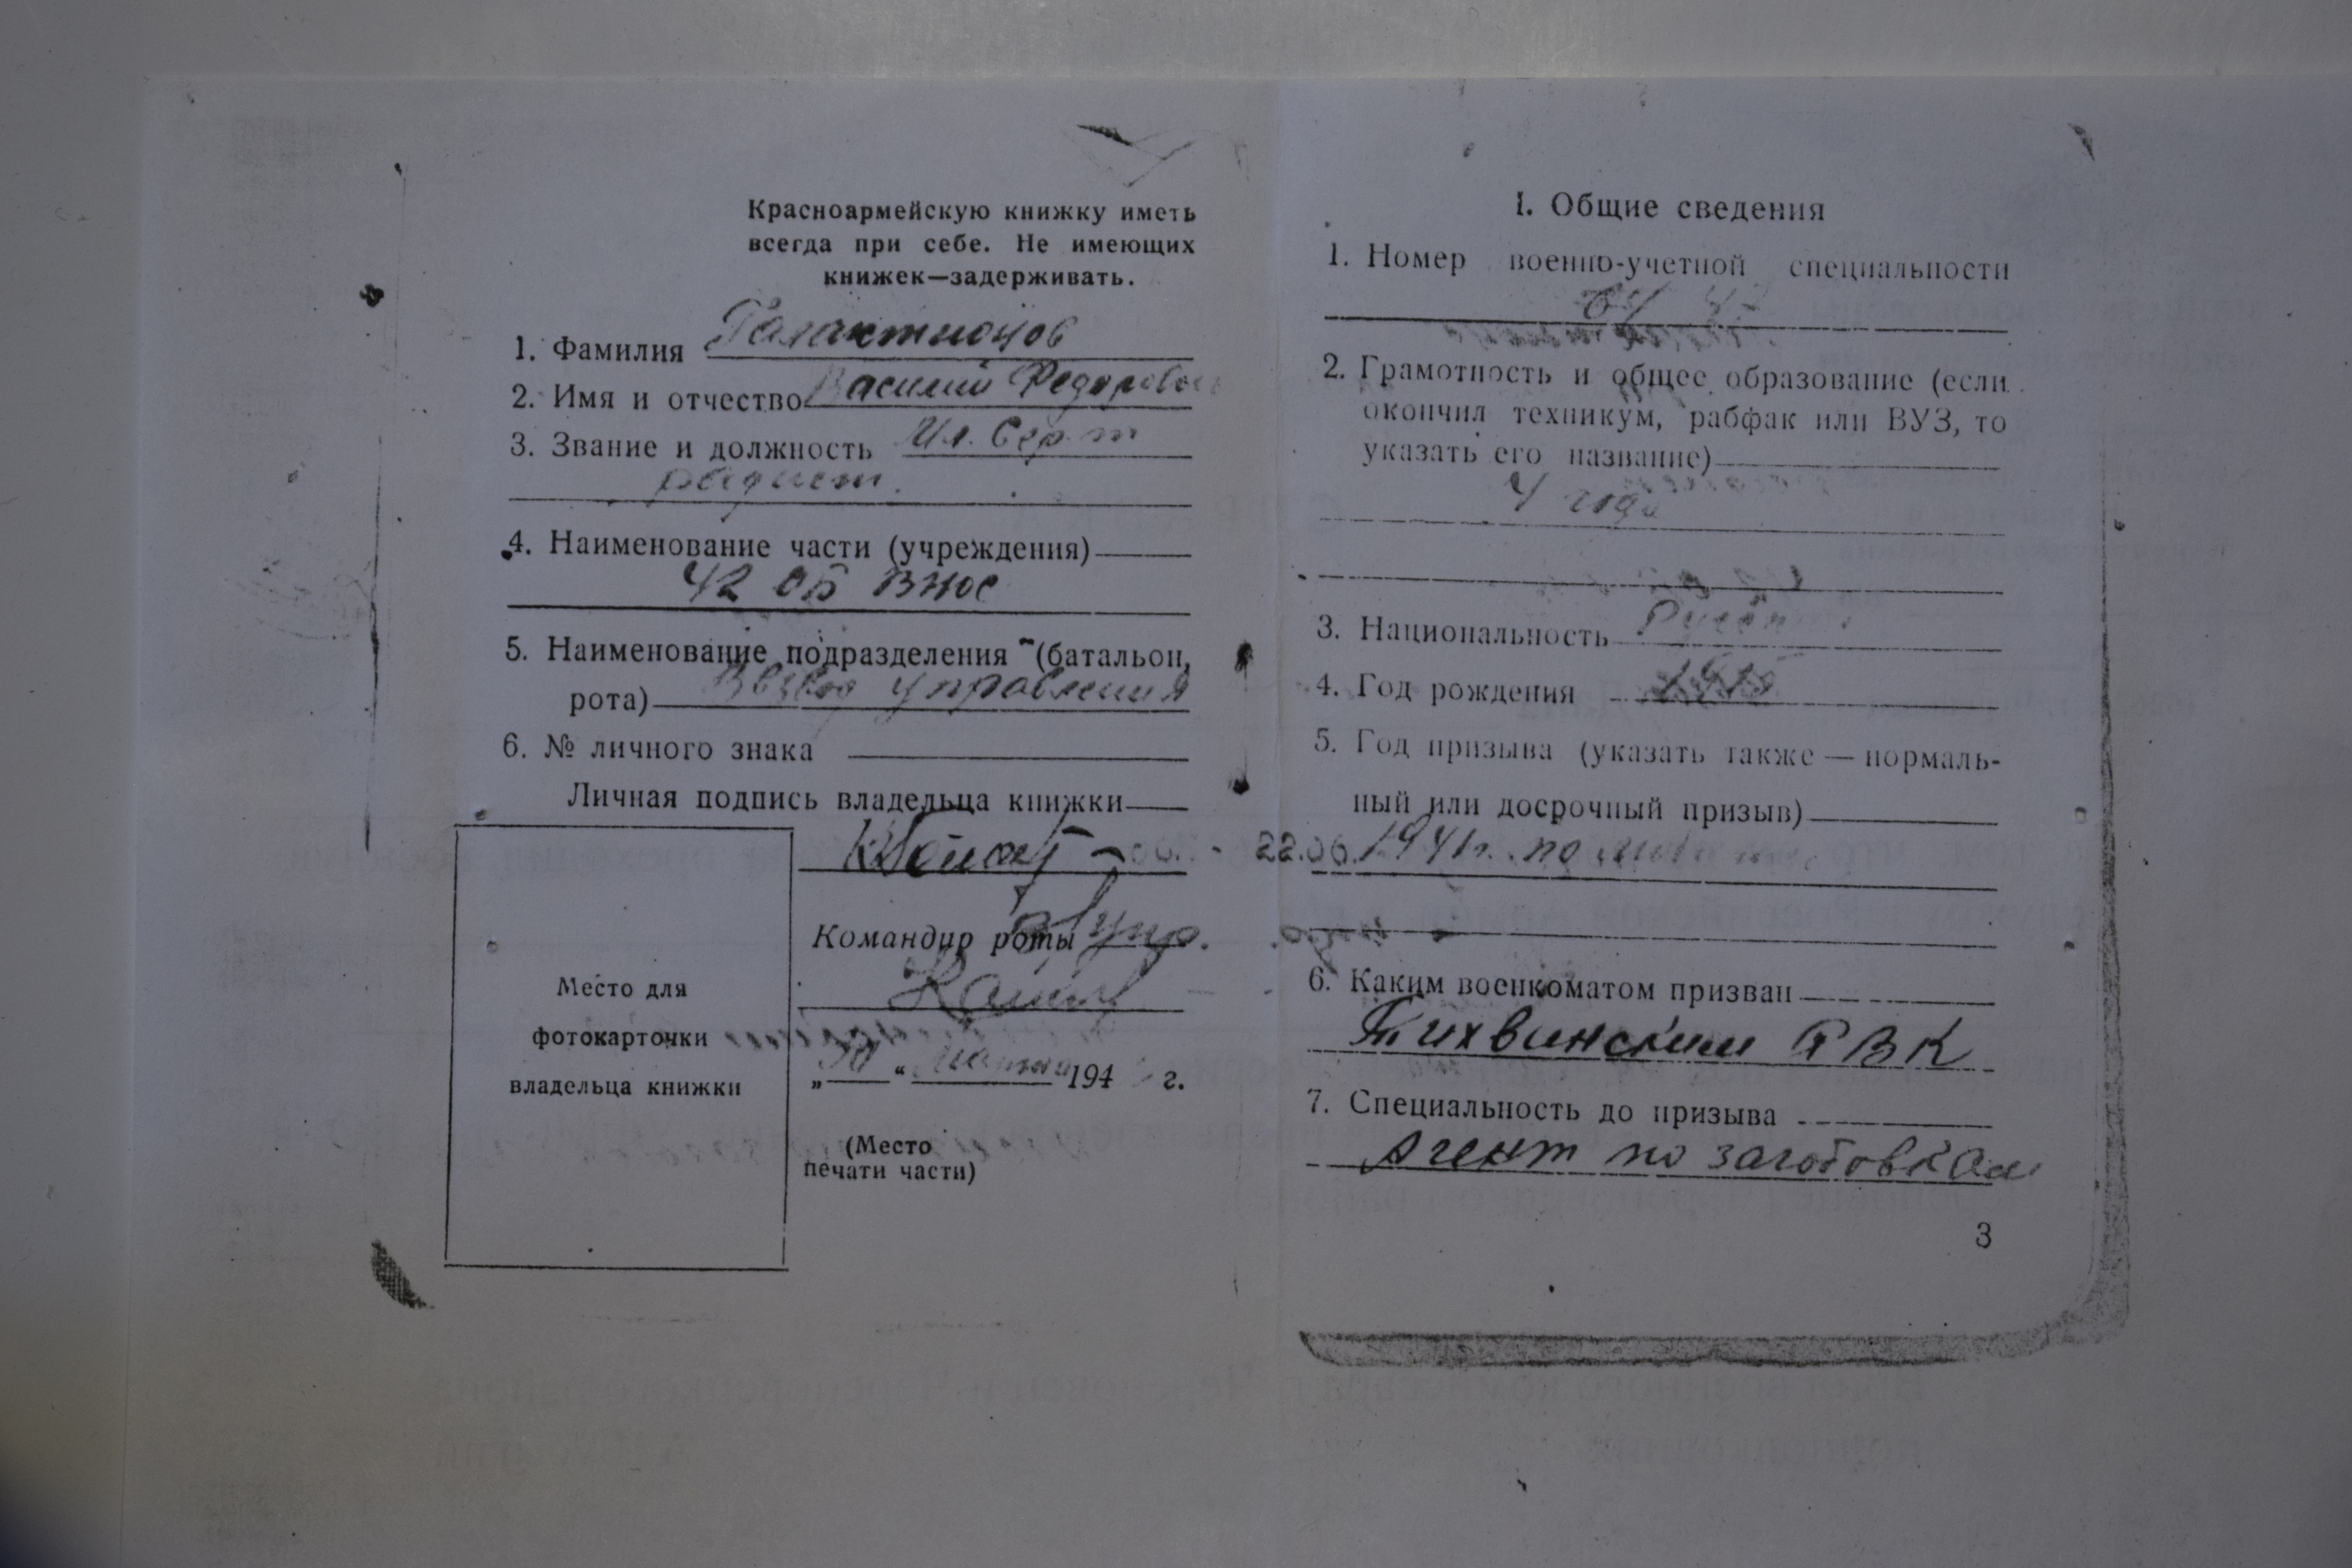 Красноармейскую книжку иметь
всегда при себе. Не имеющих
книжек—задерживать.
1. Фамилия Галактионов
2. Имя и отчество Василий Федорович
3. Звание и должность Мл. Серт
радист.
4. Наименование части (учреждения)
42 ОБ ВНОС
5. Наименование подразделения (батальон,
рота) Взвод управления
6. № личного знака
Личная подпись владельца книжки
Командир роты
„ “ марта 194 г.
(Место
печати части)
Место для
фотокарточки
владельца книжки
I. Общие сведения
1. Номер военно-учетной специальности
2. Грамотность и общее образование (если
окончил техникум, рабфак или ВУЗ, то
указать его название)
4 года
3. Национальность Русский
4. Год рождения
5. Год призыва (указать также — нормаль-
ный или досрочный призыв)
22.06.1941г. по
6. Каким военкоматом призван
Тихвинским РВК
7. Специальность до призыва
Агент по заготовкам
3